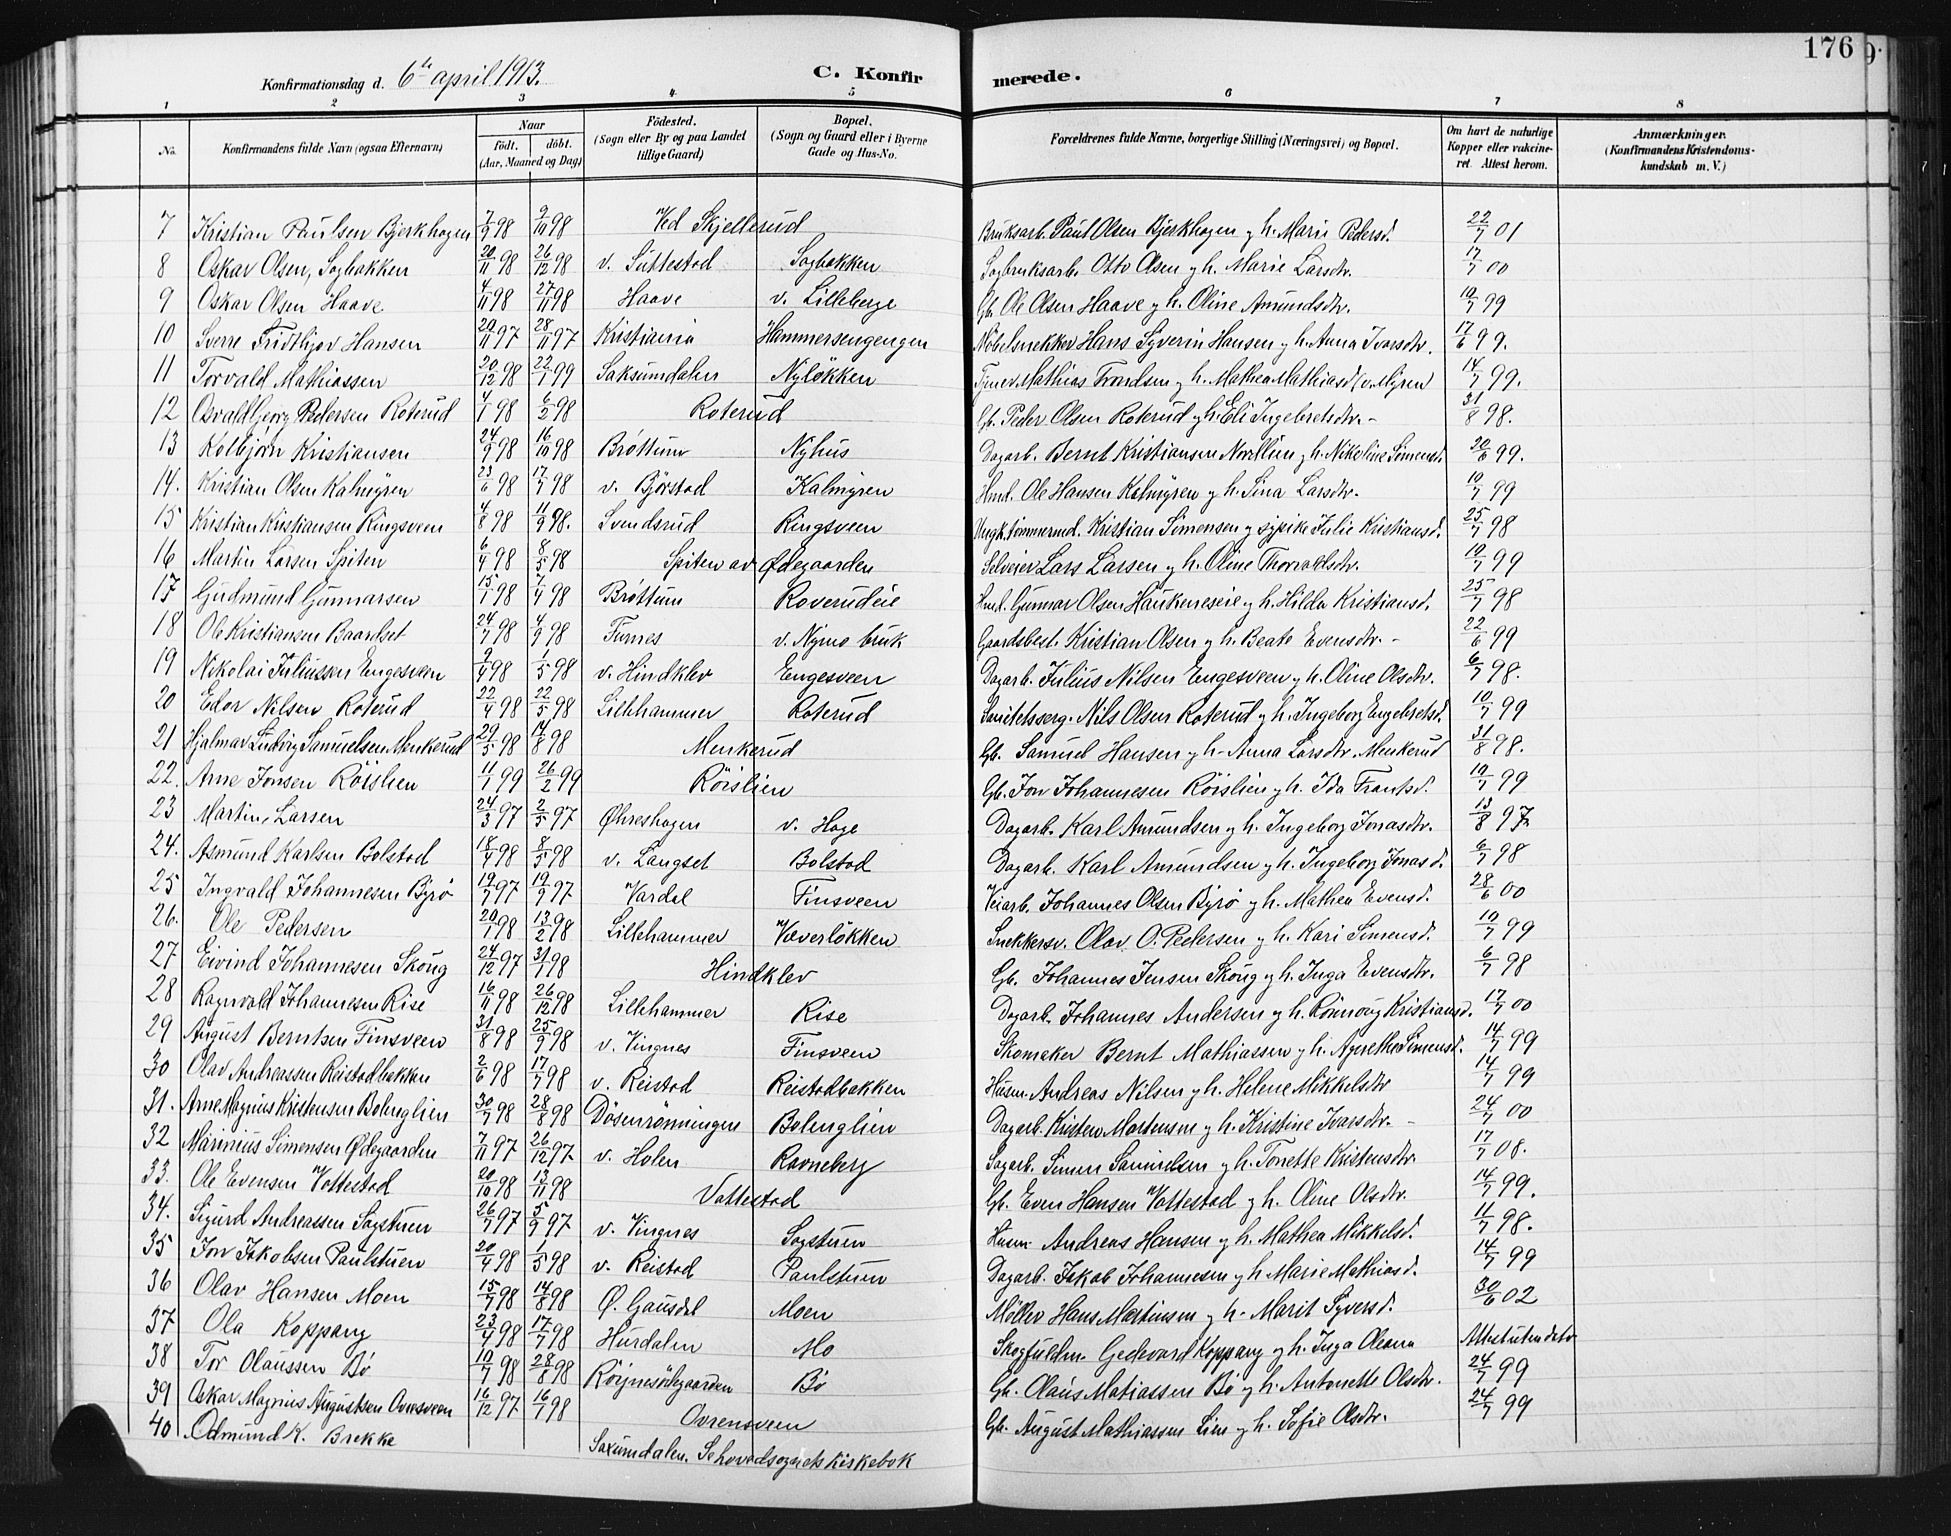 176
Konfirmationsdag d. 6te april 1913. C. Konfirmerede.
1 2 3 4 5 6 7 8
No. Konfirmandens fulde Navn (ogsaa Efternavn) Naar født. døbt. (Aar, Maaned og Dag) Fødested. (Sogn eller By og paa Landet tillige Gaard) Bopæl. (Sogn og Gaard eller i Byerne Gade og Hus-No. Forældrenes fulde Navne, borgerlige Stilling (Næringsvei) og Bopæl. Om havt de naturlige Kopper eller vakcineret. Attest herom. Anmærkninger. (Konfirmandens Kristendomskundskab m. V.)
7 Kristian Paulsen Bjerkhagen 7/9 98 9/10 98 Ved Skjellerud Bruksarb. Paul Olsen Bjerkhagen og h. Marie Pedersd. 22/7 01
8 Oskar Olsen, Sagbakken 20/11 98 26/12 98 v. Suttestad Sagbakken Sagbruksarb. Otto Olsen og h. Marie Larsdtr. 17/7 00
9 Oskar Olsen Haave 4/11 98 27/11 98 Haave v. Lilleberge Gb. Ole Olsen Haave og h. Oline Amundsdtr. 10/7 99
10 Sverre Fridthjov Hansen 20/11 97 28/11 97 Kristiania Hammersengengen Møbelsnekker Hans Syverin Hansen og h. Anna Ivarsdtr. 17/6 99.
11 Torvald Mathiassen 20/12 98 22/1 99 Saksumdalen Nyløkken Tjener Mathias Trondsen og h. Mathea Mathiasd (v. Myren 14/7 99.
12 Osvald Georg Pedersen Roterud 4/1 98 6/2 98 Roterud Gb. Peder Olsen Roterud og h. Eli Ingebretsdtr. 31/8 98.
13 Kolbjørn Kristiansen 24/9 98 16/10 98 Brøttum Nyhus Dagarb. Bernt Kristiansen Nordlien og h. Nikoline Simensd. 20/6 99.
14. Kristian Olsen Kalmyren 23/6 98 17/7 98 v. Bjørstad Kalmyren Hmd. Ole Hansen Kalmyren og h. Sina Larsdtr. 10/7 99
15 Kristian Kristiansen Ringsveen 4/8 98 11/9 98. Svendsrud Ringsveen Ungk. tømmermd. Kristian Simensen og sypike Julie Kristiansd. 25/7 98
16 Martin Larsen Spiten 6/4 98 8/5 98 Spiten av Ødegaarden Selveier Lars Larsen og h. Oline Thorvaldsdtr. 10/7 99
17 Gudmund Gunnarsen 15/1 98 7/4 98 Brøttum Roverudeie Hmd. Gunnar Olsen Haukeneseie og h. Hilda Kristiansd. 25/7 98
18 Ole Kristiansen Baardset 24/7 98 4/9 98 Furnes v. Nymo bruk Gaardsbest. Kristian Olsen og h. Beate Evensdtr. 22/6 99
19 Nikolai Juliussen Engesveen 9/4 98 1/5 98 v. Hindklev Engesveen Dagarb. Julius Nilsen Engesveen og h. Oline Olsdtr. 6/7 98.
20 Edor Nilsen Roterud 22/4 98 22/5 98 Lillehammer Roterud Sanitetsserg. Nils Olsen Roterud og h. Ingeborg Engebretsd. 10/7 99
21 Hjalmar Ludvig Samuelsen Menkerud 29/5 98 14/8 98 Menkerud Gb. Samuel Hansen og h. Anna Larsdtr. Menkerud 31/8 98.
22. Arne Jonsen Röislien 11/1 99 26/2 99 Röislien Gb. Jon Johannesen Röislien og h. Ida Frantsd. 10/7 99
23 Martin Larsen 24/3 97 2/5 97 Øhreshagen v. Hage Dagarb. Karl Amundsen og h. Ingeborg Jonasdtr. 13/8 97.
24. Asmund Karlsen Bolstad 18/4 98 8/5 98 v. Langset Bolstad Dagarb. Karl Amundsen og h. Ingeborg Jonasd. 6/7 98
25 Ingvald Johannesen Byrø 19/7 97 19/9 97 Vardal Finsveen Veiarb. Johannes Olsen Byrø og h. Mathea Evensd. 28/6 00
26. Ole Pedersen 20/1 98 13/2 98 Lillehammer Væverløkken Snekkersv. Olav O. Pedersen og h. Kari Simensd. 10/7 99
27 Eivind Johannesen Skoug 24/12 97 31/1 98 Hindklev Gb. Johannes Jensen Skoug og h. Inga Evensdtr. 6/7 98
28 Ragnvald Johannesen Rise 16/11 98 26/12 98 Lillehammer Rise Dagarb. Johannes Andersen og h. Rönnoug Kristiansd. 17/7 00
29 August Berntsen Finsveen 31/8 98 25/9 98 v. Vingnes Finsveen Skomaker Bernt Mathiassen og h. Agnethe Simensd. 14/7 99
30 Olav Andreassen Reistadbakken 2/6 98 17/7 98 v. Reistad Reistadbakken Husm. Andreas Nilsen og h. Helene Mikkelsdtr 14/7 99
31. Arne Magnus Kristensen Bolenglien 30/7 98 28/8 98 Dösenrønningen Bolenglien Dagarb. Kristen Mortensen og h. Kristine Ivarsdtr. 24/7 00
32 Marinius Simensen Ødegaarden 7/11 97 26/12 97 v. Holen Ravneberg Sagarb. Simen Samuelsen og h. Tonette Kristensdtr. 17/7 08.
33. Ole Evensen Vattestad 20/10 98 13/11 98 Vattestad Gb. Even Hansen Vattestad og h. Oline Olsdtr. 14/7 99.
34. Sigurd Andreassen Sagstuen 26/7 97 5/9 97 v. Vingnes Sagstuen Husm. Andreas Hansen og h. Mathea Mikkelsd. 11/7 98.
35 Jon Jakobsen Paulstuen 20/4 98 1/5 98 v. Reistad Paulstuen Dagarb. Jakob Johannesen og h. Marie Mathiasd. 14/7 99
36 Olav Hansen Moen 15/7 98 14/8 98 Ø. Gausdal Moen Møller Hans Martinsen og h. Marit Syversd. 30/6 02
37 Ola Koppang 23/4 98 17/7 98 Hurdalen Mo Skogfuldm. Gedevard Koppang og h. Inga Oleana Attest uten dato
38 Tor Olaussen Bö 10/7 98 28/8 98 Röynesødegaarden Bö Gb. Olaus Matiassen Bö og h. Antonette Olsdtr. 24/7 99
39 Oskar Magnus Augustsen Ovresveen 16/12 97 16/1 98 Ovrensveen Gb. August Mathiassen Lien og h. Sofie Olsdtr. 24/7 99
40 Odmund K. Brekke Saxumdalen. Se hovedsognets kirkebok